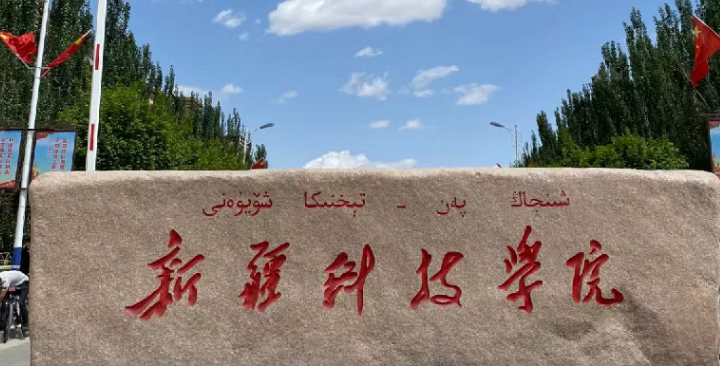 شىنجاڭ پەن - تېخنىكا شۆيۈەنى
新疆科技学院